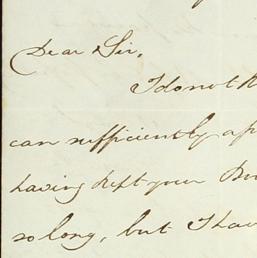 Dear Sir,
I do not
can sufficiently
having kept your
so long, but I have